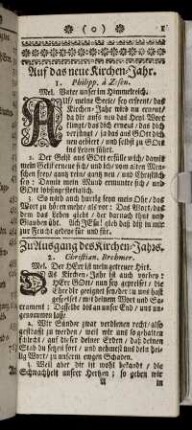 ( o )
1
Auf das neue Kirchen-Jahr.
1. Philipp. à Zesen.
Mel. Vater unser im Himmelreich.
AUff/ meine Seele/ sey erfreut/ das
Kirchen-Jahr wird
da dir aufs neu das Heyl Wort
klingt/ das dich erneut/ das dich
/ ja das aus GOtt
nen / und selbst zu GOtt
ins leben führt.
2. Der Geist aus GOtt erfülle mich/ damit
mein Geist erneue sich/ und ich/ vom alten Men-
schen frey/ auch rein/ auch neu/ und Christlich
sey: Damit mein Mund ermuntre sich/ und
GOtt lobsinge stetiglich.
3. So nüch auch hurtig seyn mein Ohr/ das
Wort zu hören mehr/ als vor: Das Wort/ das
dem das Leben giebt/ der darnach thut und
Glauben übt. Ach JEsu! gieb daß diß in mir
zur Frucht gedeye für und für.
Zu Ausgang des Kirchen-Jahrs.
2. Christian. Brehmer.
Mel. Der HErr ist mein getreuer Hirt.
DAs Kirchen-Jahr ist auch vorbey:
HErr GOtt/ nun sey gepreiset/ die
Ehre dir gezeiget sey/ der du uns hast
gespeiset/ mit deinem Wort und Sa-
crament; Dasselbe bis an unser End/ uns
genommen laß.
2. Wir Sünder zwar verdienen recht/
gestrafft zu werden/ weil wir uns so
schlecht/ auf dieser deiner Erden/ daß deinen
Stab du setzest fort/ und nehmest uns dein
lig Wort/ zu unserm engen Schaden.
3. Weil aber dir ist wohl bekandt/ die
Schwachheit unsrer Hertzen; so geben wir
A